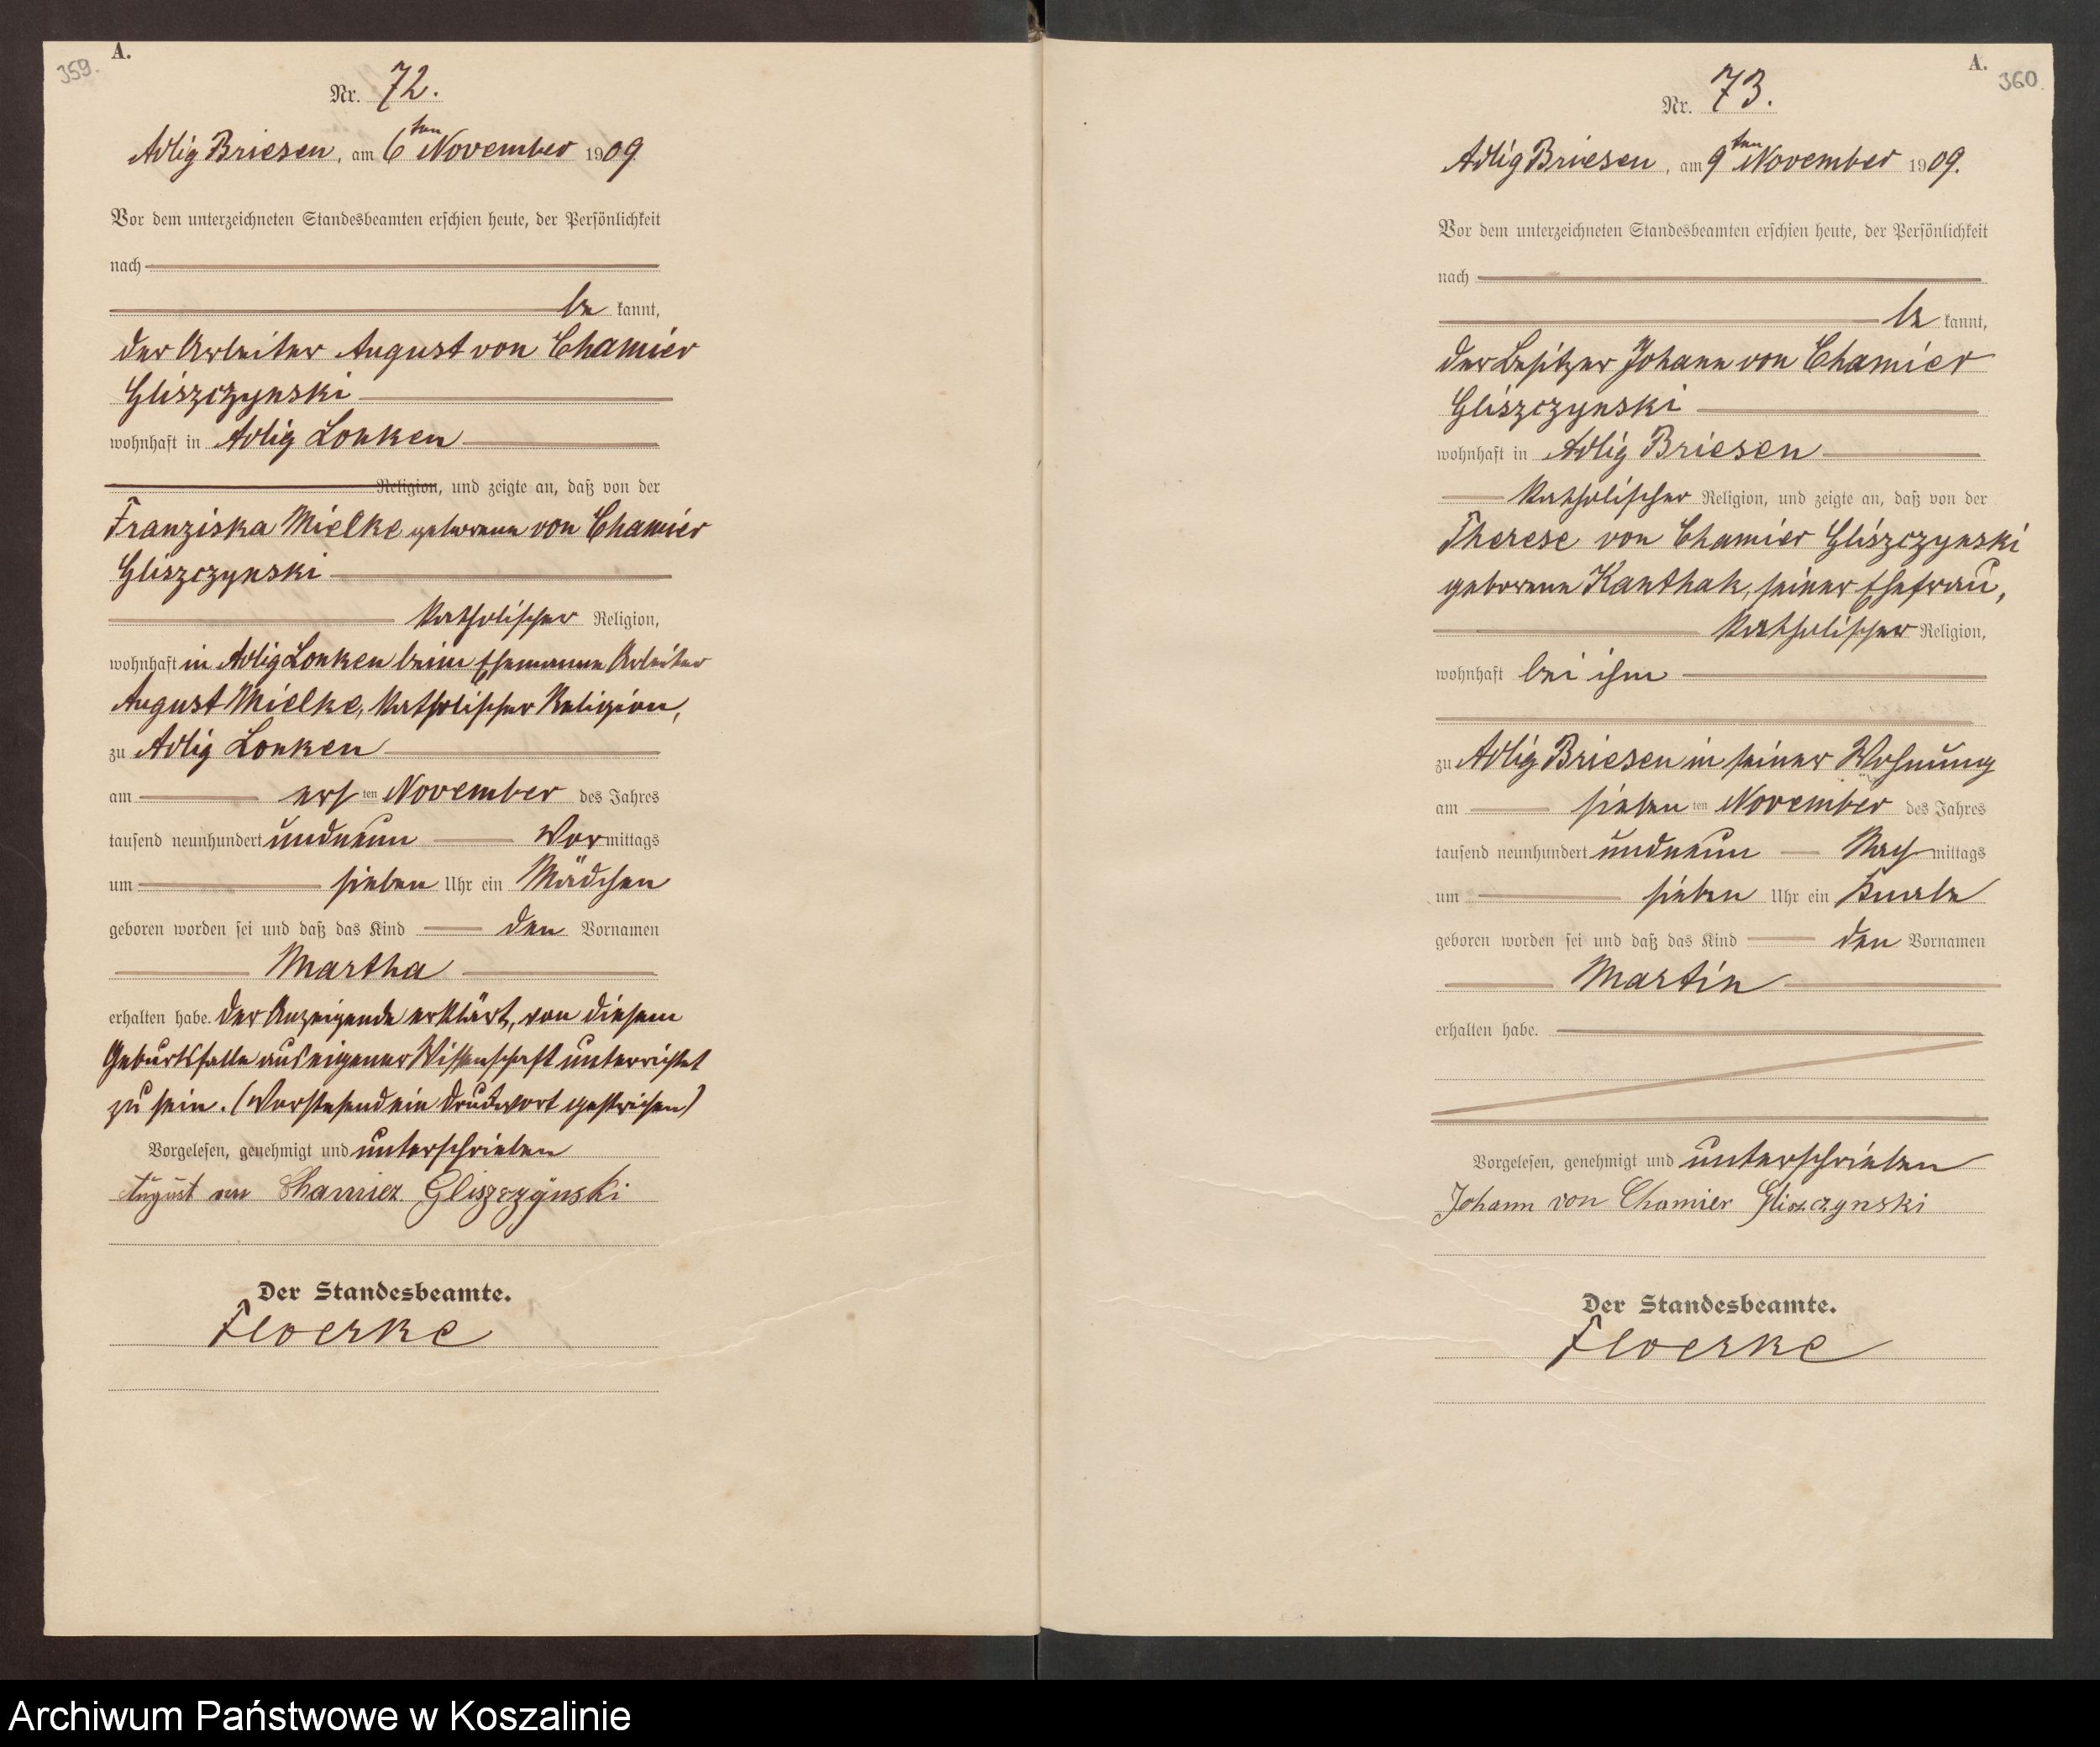 359.
A.
Nr. 72.
Adlig Briesen, am 6ten November 1909
Vor dem unterzeichneten Standesbeamten erschien heute, der Persönlichkeit
nach
be kannt,
der Arbeiter August von Chamier
Gliszczynski
wohnhaft in Adlig Lonken
Religion, und zeigte an, daß von der
Franziska Mielke geborene von Chamier
Gliszczynski
katholischer Religion,
wohnhaft in Adlig Lonken beim Ehemanne Arbeiter
August Mielke, katholischer Religion,
zu Adlig Lonken
am ersten November des Jahres
tausend neunhundert undneun Vormittags
um sieben Uhr ein Mädchen
geboren worden sei und daß das Kind den Vornamen
Martha
erhalten habe. Der Anzeigende erklärt, von diesem
Geburtsfalle aus eigener Wissenschaft unterrichtet
zu sein. (Vorstehend ein Druckwort gestrichen)
Vorgelesen, genehmigt und unterschrieben
August von Chamier Gliszczynski
Der Standesbeamte.
Floerke
A.
360
Nr. 73.
Adlig Briesen, am 9ten November 1909.
Vor dem unterzeichneten Standesbeamten erschien heute, der Persönlichkeit
nach
be kannt,
der Besitzer Johann von Chamier
Gliszczynski
wohnhaft in Adlig Briesen
katholischer Religion, und zeigte an, daß von der
Therese von Chamier Gliszczynski
geborene Kanthak, seiner Ehefrau,
katholischer Religion,
wohnhaft bei ihm
zu Adlig Briesen in seiner Wohnung
am siebenten November des Jahres
tausend neunhundert undneun Nachmittags
um sieben Uhr ein Knabe
geboren worden sei und daß das Kind den Vornamen
Martin
erhalten habe.
Vorgelesen, genehmigt und unterschrieben
Johann von Chamier Gliszczynski
Der Standesbeamte.
Floerke
Archiwum Państwowe w Koszalinie